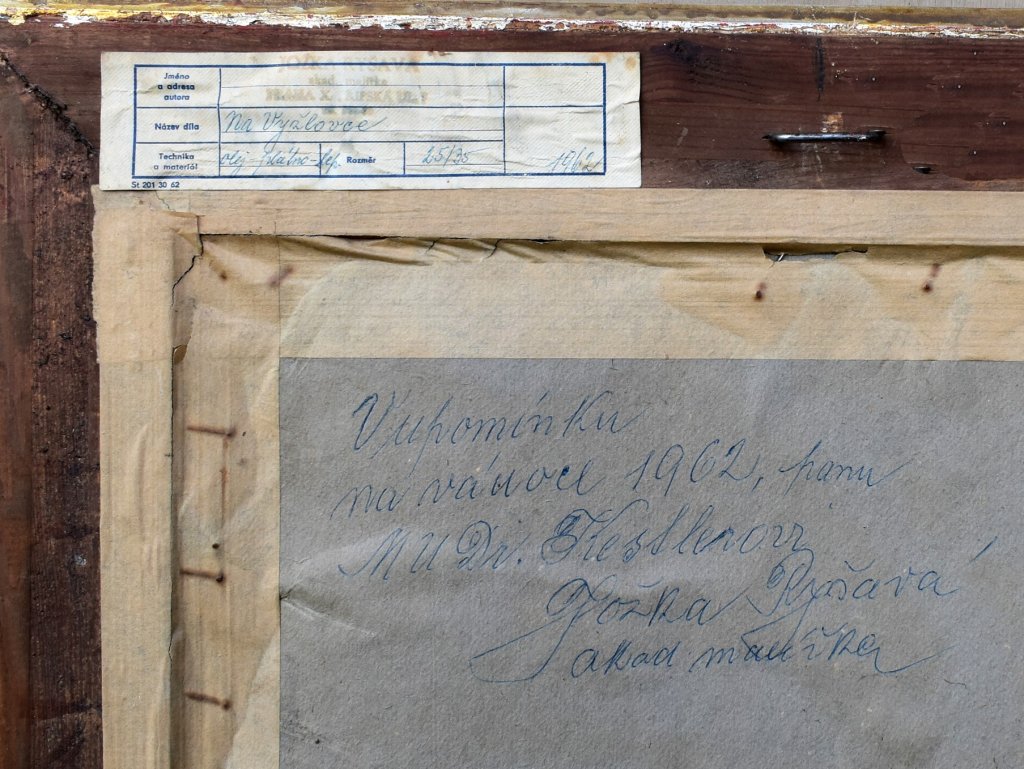 akad. malířka
Jméno
a adresa
autora
Název díla
Na Vyžlovce
Technika
a materiál
olej-plátno-lep.
Rozměr
25/35
1962
St 201 30 62
Vzpomínku
na vánoce 1962, panu
MUDr. Kesslerovi
Jožka Ryšavá
akad malířka